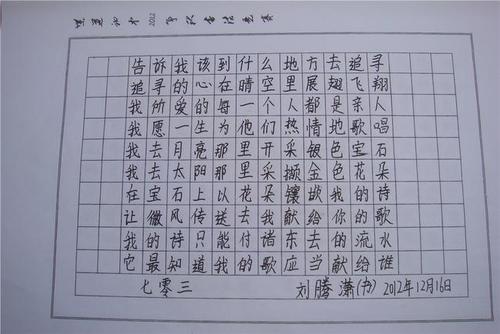 2012
告诉我该到什么地方去追寻
追寻的心在晴空里展翅飞翔
我所爱的每一个人都是亲人
我愿一生为他们热情地歌唱
我去月亮那里开采银色宝石
我去太阳那里采撷金色花朵
在宝石上以花朵镶嵌我的诗
让微风传送去我献给你的歌
我的诗只能付诸东去的流水
它最知道我的歌应当献给谁
七零三 刘腾潇(书) 2012年12月16日